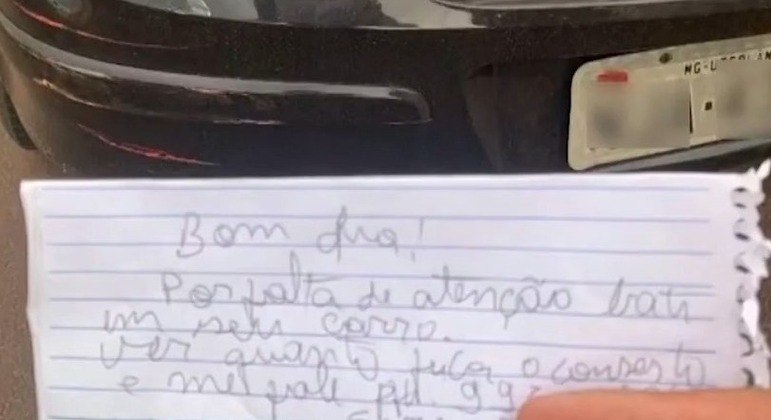 MG-U
Bom dia!
Por falta de atenção bati
em seu carro.
ver quanto fica o conserto
e me fale pel. 99